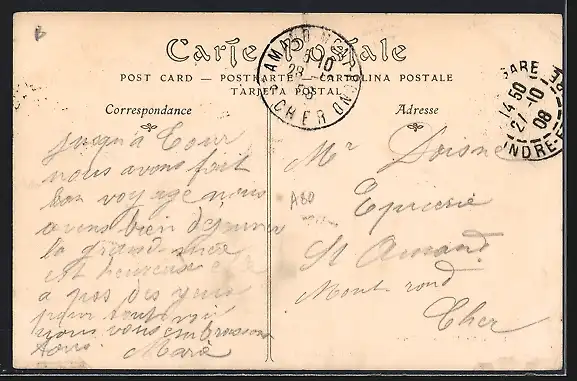 Carte Postale
POST CARD — POSTKARTE — CARTOLINA POSTALE
TARJETA POSTAL
Correspondance
jusqu'a Tour
nous avons fait
bon voyage nous
avons bien dejeuner
la grand
est heureuse
a pas des yeux
pour tout voir
nous vous embrassons
tous. Maria
Adresse
Mr Doisne
Epicerie
St Amand
Mont rond
Cher
A60
ST AMAND MONTROND
10
28
08
CHER
GARE
14 50
27 - 10
08
INDRE-E